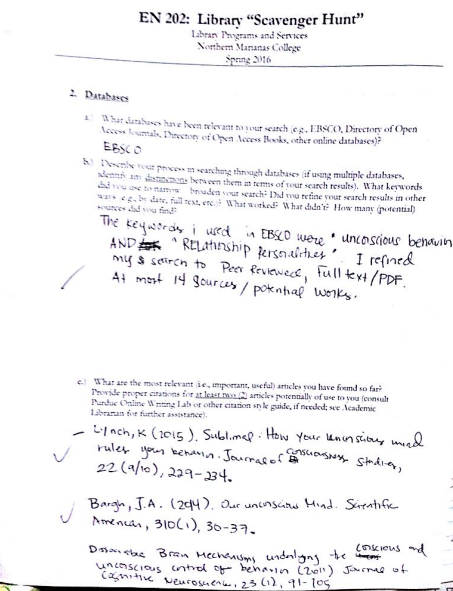 EN 202: Library "Scavenger Hunt"
Library Programs and Services
Northern Marianas College
Spring 2016
2. Databases
a.) What databases have been relevant to your search (e.g., EBSCO, Directory of Open
Access Journals, Directory of Open Access Books, other online databases)?
EBSCO
b.) Describe your process in searching through databases (if using multiple databases,
identify any distinctions between them in terms of your search results). What keywords
did you use to narrow broaden your search? Did you refine your search results in other
ways e.g., by date, full text, etc.? What worked? What didn't? How many (potential)
sources did you find?
The keywords i used in EBSCO were "unconscious behavior
AND "RELationship Personalities". I refined
my search to Peer Reviewed, Full text/PDF.
At most 14 sources/potential works.
c.) What are the most relevant (i.e., important, useful) articles you have found so far?
Provide proper citations for at least two (2) articles potentially of use to you (consult
Purdue Online Writing Lab or other citation style guide, if needed; see Academic
Librarian for further assistance).
- Lynch, K (2015). Sublimal: How Your Unconscious mind
rules your behavior. Journal of Consciousness Studies,
22 (9/10), 229-234.
Bargh, J.A. (2014). Our unconscious Mind. Scientific
American, 310(1), 30-37.
Brain Mechanisms underlying the conscious and
unconscious control of behavior (2011) Journal of
Cognitive Neuroscience, 23 (1), 91-105